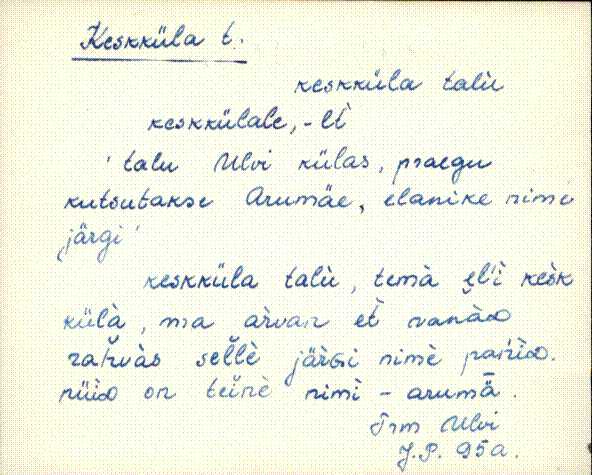 Keskküla t.
keskküla talù
keskkülale, -lt̀
'talu Ulvi külas, praegu
kutsutakse Arumäe, elanike nime
järgi'
keskküla talù, temà el'ì kesk
külà, ma arvan et̀ vanàD
rahvàs sellè järgi nimè
nüiD on teinè nimì - arumǟ.
Trm Ulvi
J.P. 95a.